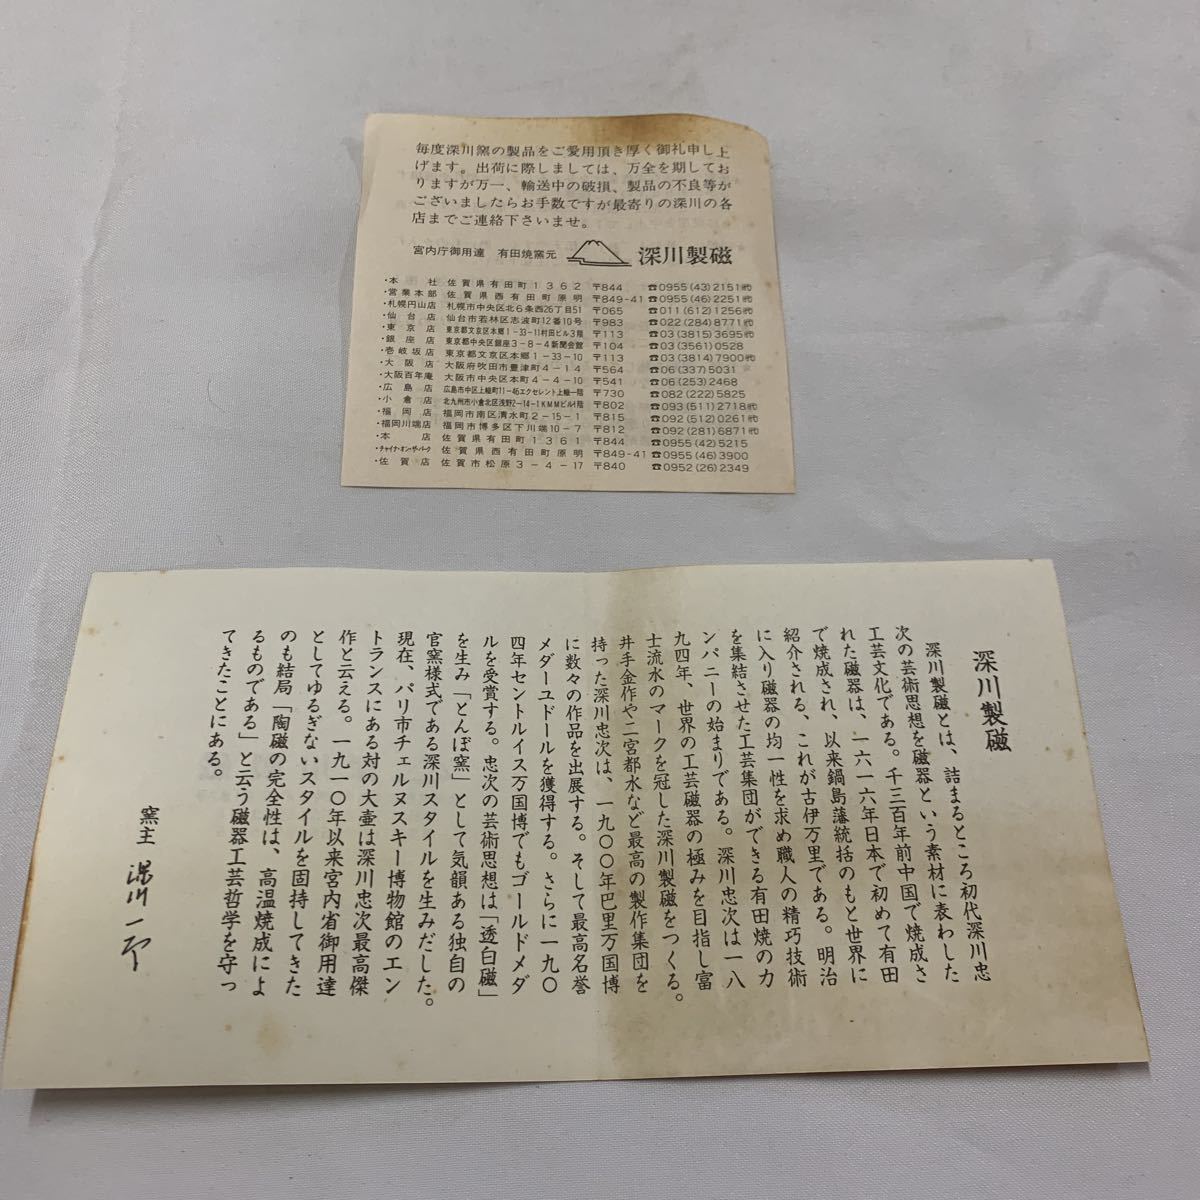 毎度深川窯の製品をご愛用頂き厚く御礼申し上
げます。出荷に際しましては、万全を期してお
りますが万一、輸送中の破損、製品の不良等が
ございましたらお手数ですが最寄りの深川の各
店までご連絡下さいませ。
宮内庁御用達 有田焼窯元 深川製磁
・本社 佐賀県有田町1362 〒844 ☎0955(43)2151㈹
・営業本部 佐賀県西有田町原明 〒849-41 ☎0955(46)2251㈹
・札幌円山店 札幌市中央区北6条西26丁目51 〒065 ☎011(612)1256㈹
・仙台店 仙台市若林区志波町12番10号 〒983 ☎022(284)8771㈹
・東京店 東京都文京区本郷1-33-11村田ビル3階 〒113 ☎03(3815)3695㈹
・銀座店 東京都中央区銀座3-8-4新聞会館 〒104 ☎03(3561)0528
・壱岐坂店 東京都文京区本郷1-33-10 〒113 ☎03(3814)7900㈹
・大阪店 大阪府吹田市豊津町4-14 〒564 ☎06(337)5031
・大阪百年庵 大阪市中央区本町4-4-10 〒541 ☎06(253)2468
・広島店 広島市中区上幟町11-46エクセレント上幟一階 〒730 ☎082(222)5825
・小倉店 北九州市小倉北区浅野2-14-1KMMビル1階 〒802 ☎093(511)2718㈹
・福岡店 福岡市南区清水町2-15-1 〒815 ☎092(512)0261㈹
・福岡川端店 福岡市博多区下川端10-7 〒812 ☎092(281)6871㈹
・本店 佐賀県有田町1361 〒844 ☎0955(42)5215
・チャイナ・オン・ザ・パーク 佐賀県西有田町原明 〒849-41 ☎0955(46)3900
・佐賀店 佐賀市松原3-4-17 〒840 ☎0952(26)2349
深川製磁
深川製磁とは、詰まるところ初代深川忠
次の芸術思想を磁器という素材に表わした
工芸文化である。千三百年前中国で焼成さ
れた磁器は、一六一六年日本で初めて有田
で焼成され、以来鍋島藩統括のもと世界に
紹介される、これが古伊万里である。明治
に入り磁器の均一性を求め職人の精巧技術
を集結させた工芸集団ができる有田焼のカ
ンパニーの始まりである。深川忠次は一八
九四年、世界の工芸磁器の極みを目指し富
士流水のマークを冠した深川製磁をつくる。
井手金作や二宮都水など最高の製作集団を
持った深川忠次は、一九〇〇年巴里万国博
に数々の作品を出展する。そして最高名誉
メダーユドールを獲得する。さらに一九〇
四年セントルイス万国博でもゴールドメダ
ルを受賞する。忠次の芸術思想は「透白磁」
を生み「とんぼ窯」として気韻ある独自の
官窯様式である深川スタイルを生みだした。
現在、パリ市チェルヌスキー博物館のエン
トランスにある対の大壷は深川忠次最高傑
作と云える。一九一〇年以来宮内省御用達
としてゆるぎないスタイルを固持してきた
のも結局「陶磁の完全性は、高温焼成によ
るものである」と云う磁器工芸哲学を守っ
てきたことにある。
窯主 深川一